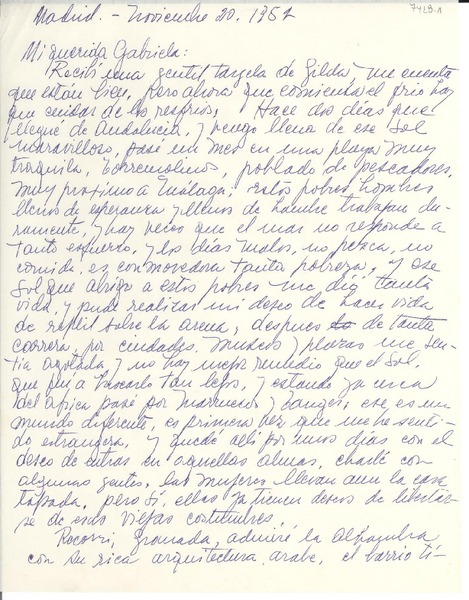 7429.1
Madrid. - Noviembre 20. 1951
Mi querida Gabriela:
Recibí una gentil tarjeta de Gilda, me cuenta
que están bien, pero ahora que comienza el frío hay
que cuidar de los resfríos. Hace dos días que
llegué de Andalucía, y vengo llena de ese sol
maravilloso, pasé un mes en una playa muy
tranquila, Torremolinos, poblado de pescadores,
muy proximo a Málaga, estos pobres hombres
llenos de esperanza y llenos de hambre trabajan du-
ramente, y hay veces que el mar no responde a
tanto esfuerzo, y los días malos, no pesca, no
comida, es conmovedora tanta pobreza, y ese
sol que abriga a estos pobres me dió tanta
vida, y pude realizar mi deseo de hacer vida
de reptil sobre la arena, despues de tanta
carrera, por ciudades, museos y plazas me sen-
tía agotada, y no hay mejor remedio que el sol,
que fui a buscarlo tan lejos, y estando ya cerca
del Africa pasé por Marruecos y Tanger, ese es un
mundo diferente, es primera vez que me he senti-
do extrangera, y quedé allí por unos días con el
deseo de entrar en aquellas almas, charlé con
algunas gentes, las mujeres llevan aun la cara
tapada, pero sí, ellas ya tienen deseos de libertar-
se de esas viejas costumbres.
Recorrí, Granada, admiré la Alhambra
con su rica arquitectura arabe, el barrio tí-